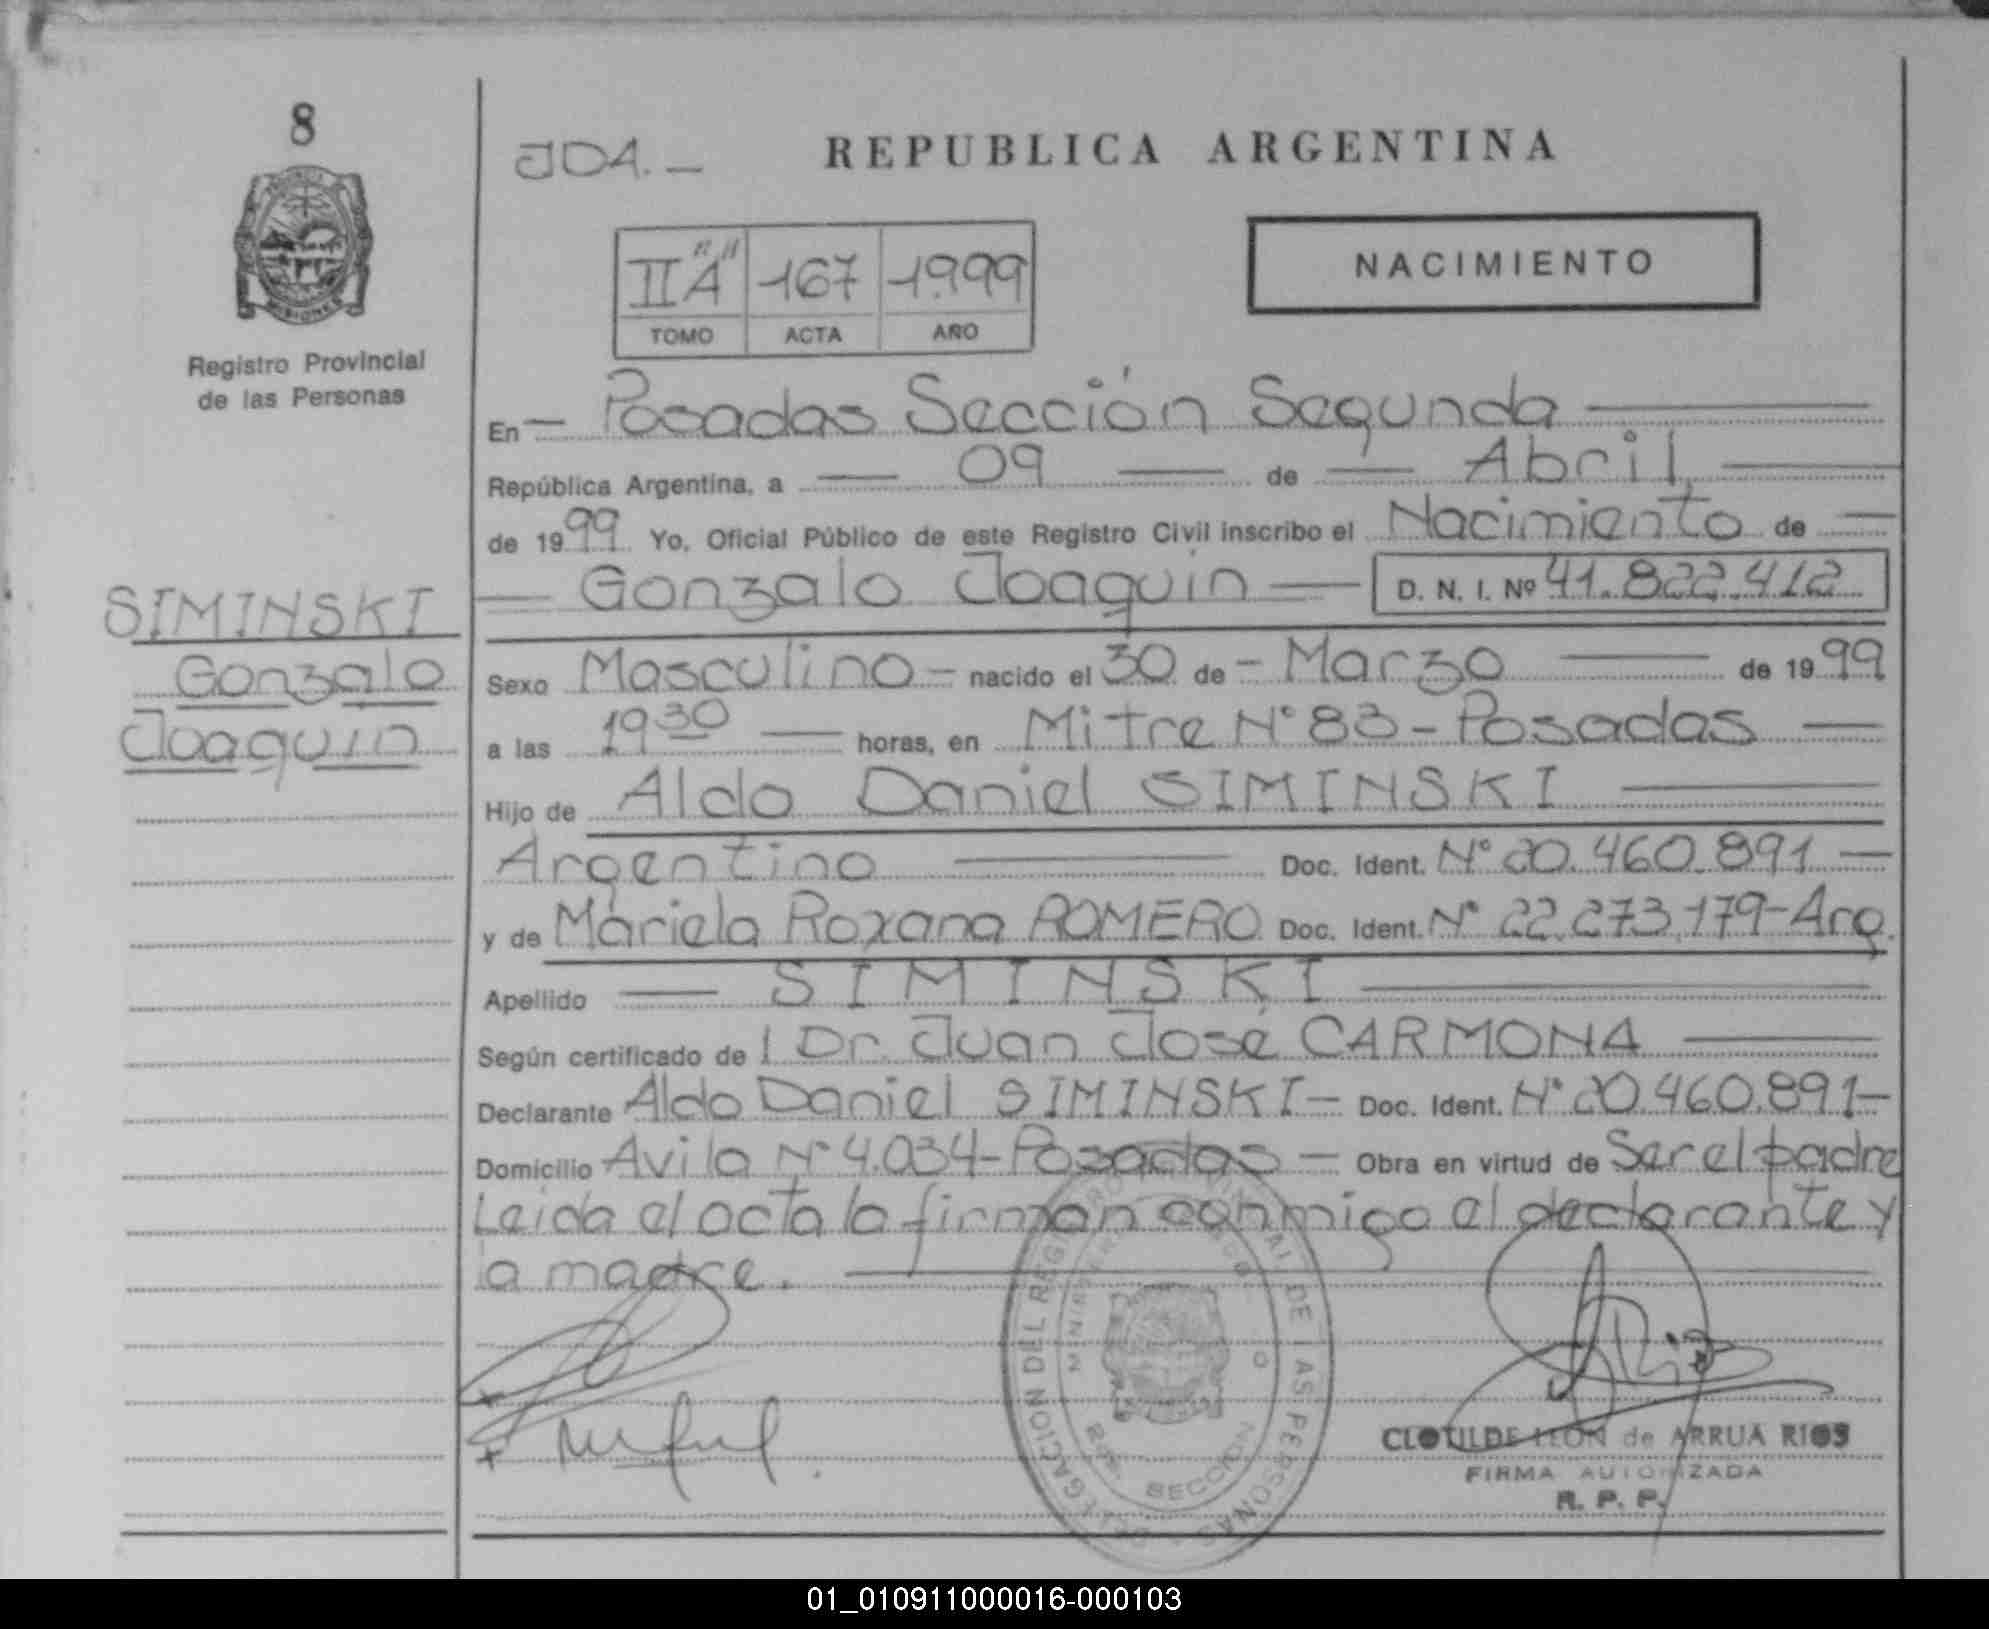 8
JDA.-
REPUBLICA ARGENTINA
II "A" 167 1.999
TOMO ACTA AÑO
NACIMIENTO
MISIONES
Registro Provincial
de las Personas
En Posadas Sección Segunda
República Argentina, a 09 de Abril
de 1999 Yo, Oficial Público de este Registro Civil inscribo el Nacimiento de
Gonzalo Joaquin D. N. I. Nº 41.822.412
SIMINSKI
Gonzalo
Joaquin
Sexo Masculino - nacido el 30 de - Marzo de 1999
a las 19 30 horas, en Mitre Nº 83 - Posadas
Hijo de Aldo Daniel SIMINSKI
Argentino Doc. Ident. Nº 20.460.891 -
y de Mariela Roxana ROMERO Doc. Ident. Nº 22.273.179 - Arg.
Apellido SIMINSKI
Según certificado de l Dr. Juan José CARMONA
Declarante Aldo Daniel SIMINSKI - Doc. Ident. Nº 20.460.891 -
Domicilio Avila Nº 4.034 - Posadas - Obra en virtud de Ser el padre
Leida el acta la firman conmigo el declarante y
la madre.
DELEGACION DEL REGISTRO DE LAS PERSONAS
SECCION
CLOTILDE LEON de ARRUA RIOS
FIRMA AUTORIZADA
R. P. P.
01_010911000016-000103